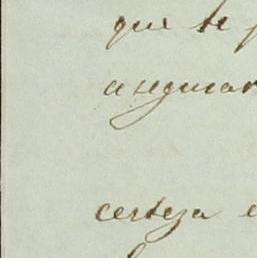 que te p
asegurar
certeza e